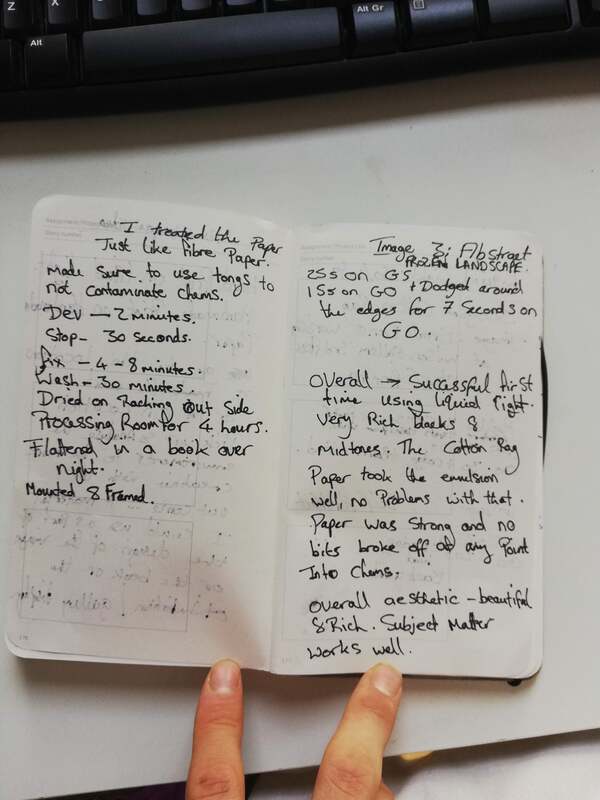 Z
X
Alt
Alt Gr
I treated the Paper
Just like Fibre Paper.
made sure to use tongs to
not contaminate chems.
Dev — 2 minutes.
Stop - 30 seconds.
fix - 4 - 8 minutes.
Wash - 30 minutes.
Dried on Racking out side
Processing Room for 4 hours.
Flattered in a book over
night.
Mounted & Framed.
Image 3: Abstract
FROZEN LANDSCAPE.
25s on G5
15s on G0 + Dodged around
the edges for 7 Seconds on
G0.
Overall → Successful first
time using liquid light.
Very Rich blacks &
midtones. The Cotton Rag
Paper took the emulsion
well, no Problems with that.
Paper was Strong and no
bits broke off at any Point
Into Chems.
overall aesthetic - beautiful
& Rich. Subject Matter
works well.